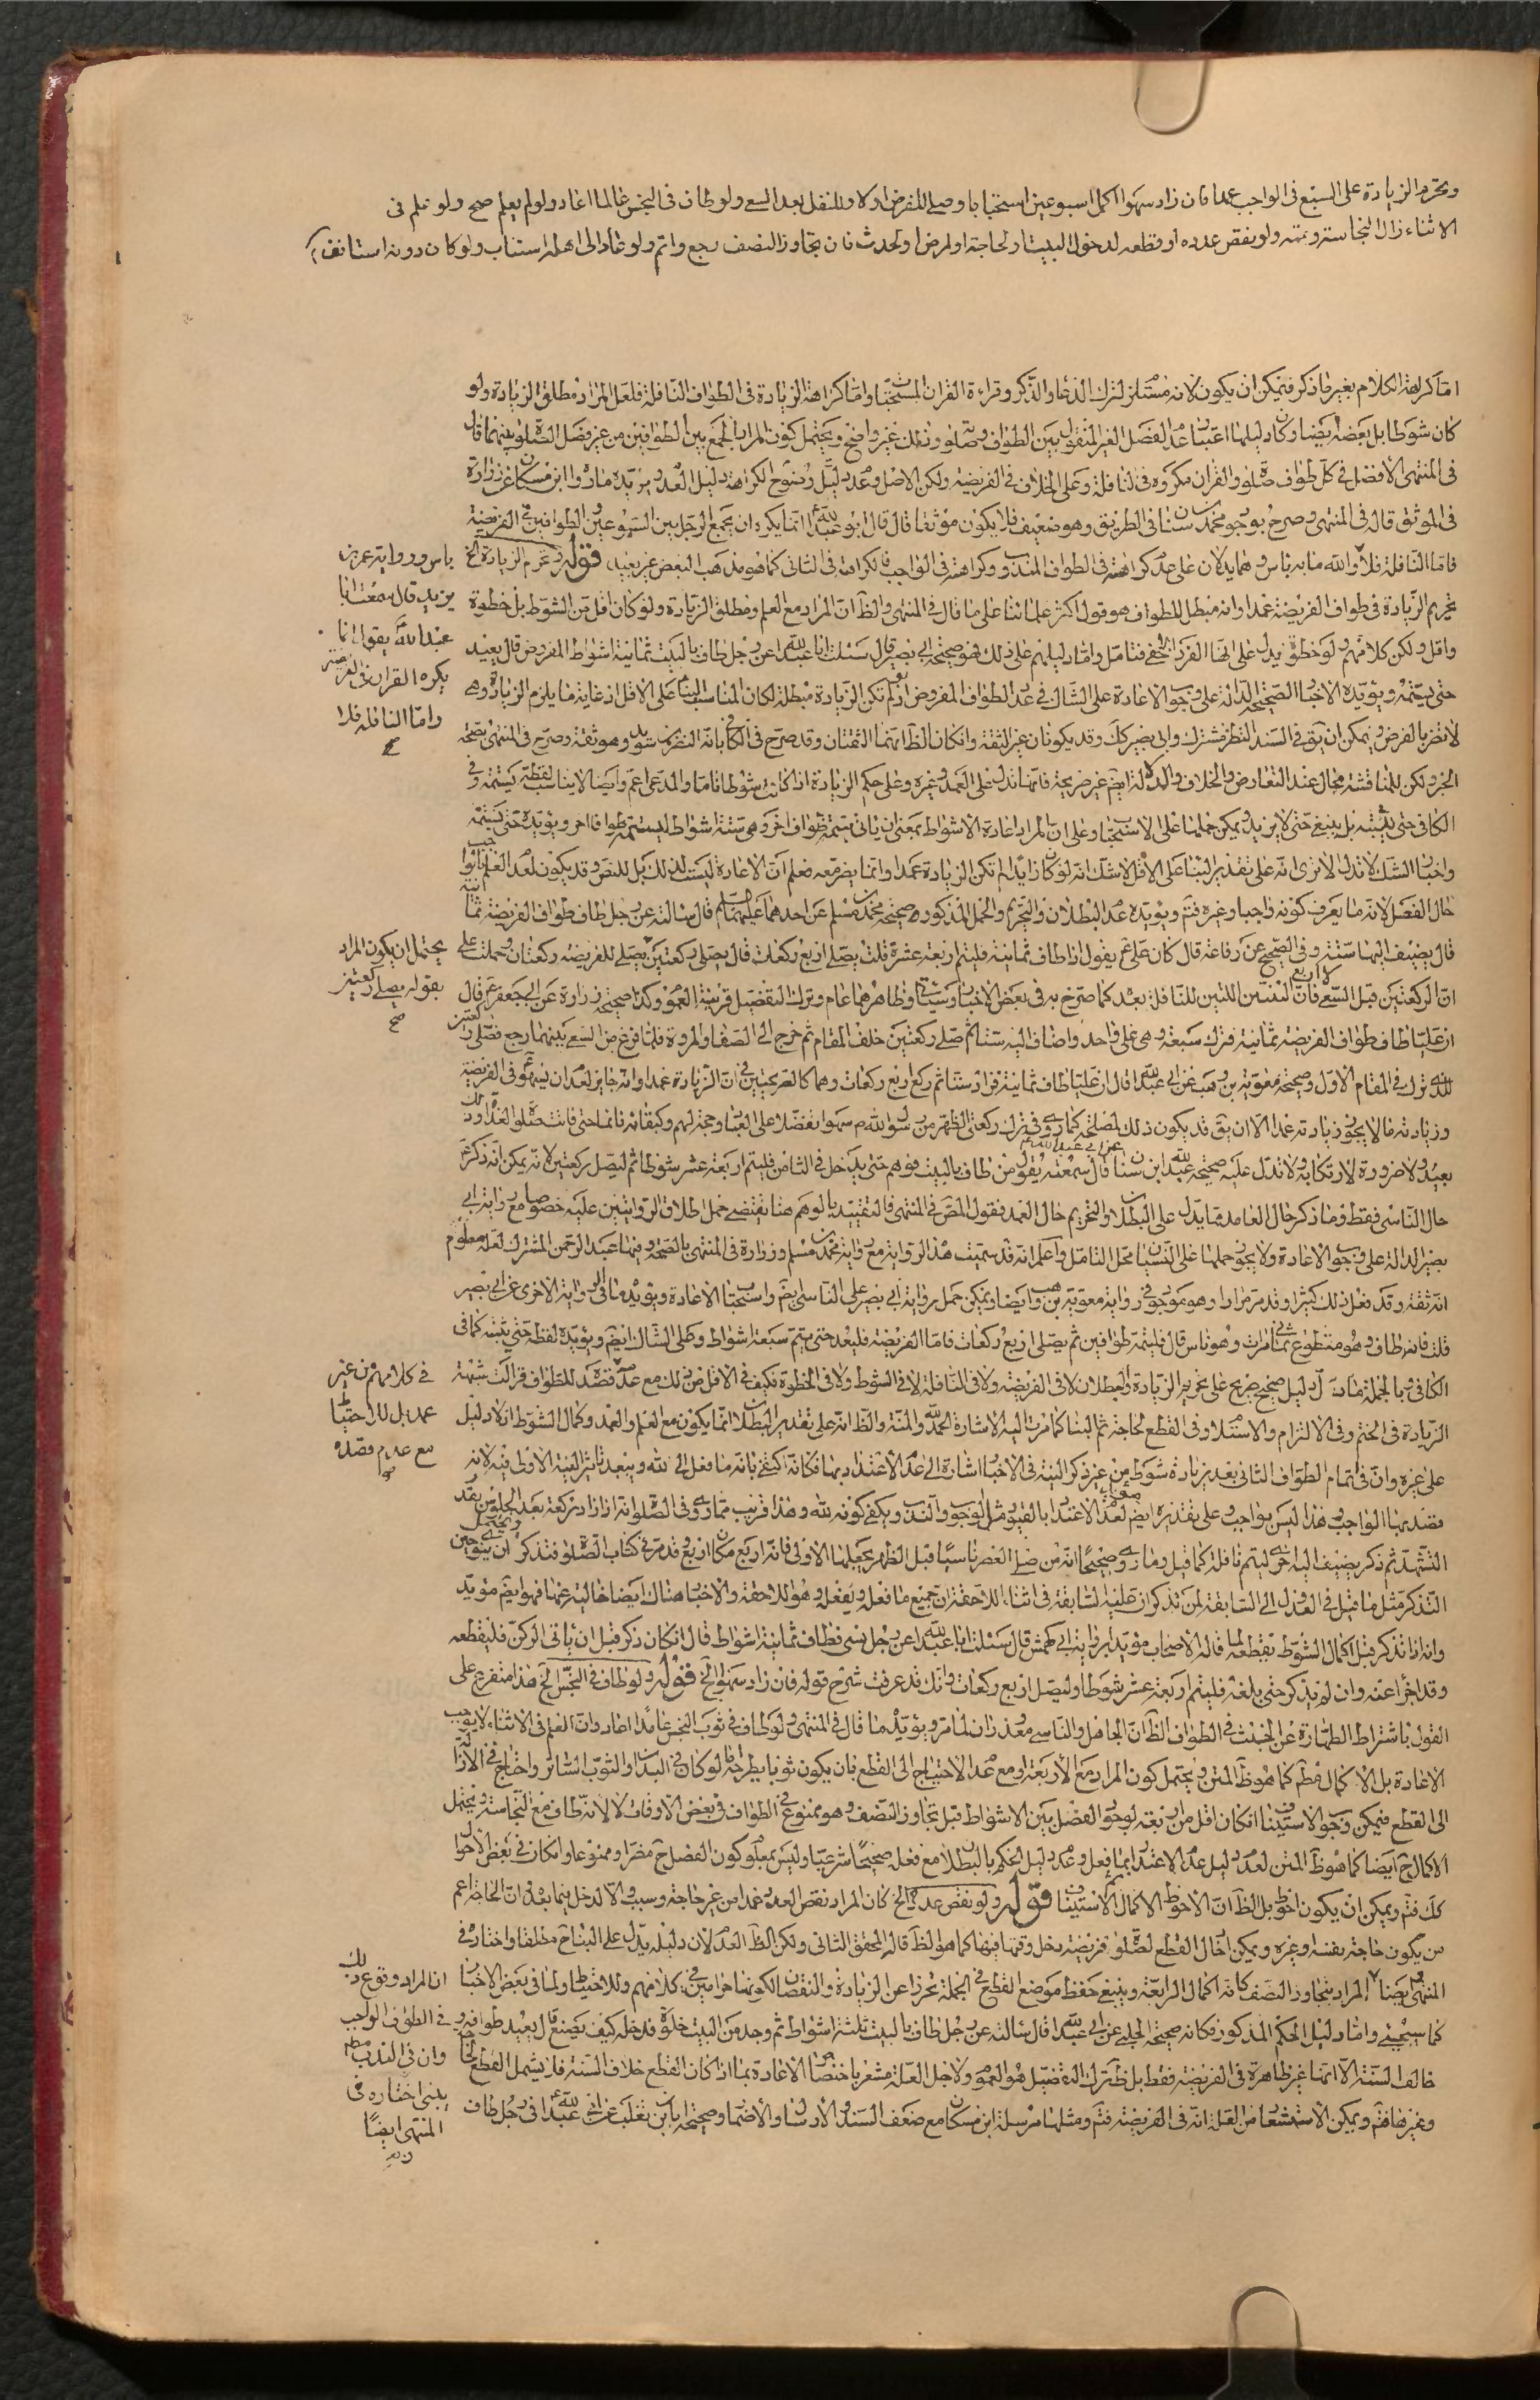 ويحرم الزيادة على السبع في الواجب عمدا فان زاد سهوا اكمل اسبوعين استحبابا وصلى للفرض اولا وللنفل بعد السعي ولو طاف في النجس عالما اعاد ولو لم يعلم صح ولو علم في
الاثناء زال النجاسة وتممه ولو نقص عدده او قطعه لدخول البيت او لحاجة او لمرض او لحدث فان تجاوز النصف رجع واتم ولو عاد الى اهله استناب ولو كان دونه استانف
اما كراهة الكلام بغير ما ذكر فيمكن ان يكون لانه مستلزم لترك الدعاء والذكر وقراءة القران المستحبة واما كراهة الزيادة في الطواف النافلة فلعل المراد مطلق الزيادة ولو
كان شوطا بل بعضه ايضا وكان دليلها اعتبار عدم الفصل الغير المنقول بين الطواف وصلوته وذلك غير واضح ويحتمل كون المراد بالجمع بين الطوافين من غير فصل الصلوة بينهما قال
في المنتهى الافضل في كل طواف صلوة والقران مكروه في النافلة وعلى الخلاف في الفريضة ولكن الاصل وعدم دليل وضوح الكراهة دليل العدم يؤيده ما رواه ابن مسكان عن زرارة
في الموثق قاله في المنتهى وصرح بوجود محمد بن سنان في الطريق وهو ضعيف فلا يكون موثقا قال قال ابو عبد الله انما يكره ان يجمع الرجل بين السبوعين والطوافين في الفريضة
فاما النافلة فلا والله ما به باس وهما يدلان على عدم كراهته في الطواف المندوب وكراهته في الواجب فالكراهة في الثاني كما هو مذهب البعض غير بعيد قوله ويحرم الزيادة الخ
تحريم الزيادة في طواف الفريضة عمدا وانه مبطل للطواف هو قول اكثر علمائنا على ما قال في المنتهى والظ ان المراد مع العلم ومطلق الزيادة ولو كان اقل من الشوط بل خطوة
واقل ولكن كلامهم ولو خطوة يدل على انها الفرد الخفي فتامل واما دليلهم على ذلك فهو صحيحة ابي بصير قال سئلت ابا عبد الله عن رجل طاف بالبيت ثمانية اشواط المفروض قال يعيد
حتى يستتمه ويؤيده الاخبار الصحيحة الدالة على وجوب الاعادة على الشاك في عدد الطواف المفروض اذ لو لم تكن الزيادة مبطلة لكان المناسب البناء على الاقل اذ غاية ما يلزم الزيادة وهي
لا تضر بالفرض ويمكن ان يق في السند النضر مشترك وابي بصير كك وقد يكونان غير الثقة وان كان الظ انهما الثقتان وقد صرح في الكافي بانه النضر بن سويد وهو ثقة وصرح في المنتهى بصحة
الخبر ولكن للمناقشة مجال عند التعارض والخلاف والدلالة ايضا غير صريحة فانها تدل على العمد وغيره وعلى حكم الزيادة اذا كانت شوطا تاما والمدعى اعم وايضا لا يناسب لفظة يستتمه وفي
الكافي حتى يثبته بل ينبغي حتى لا يزيد ويمكن حملها على الاستحباب وعلى ان المراد اعادة الاشواط بمعنى ان ياتي بتتمة طواف اخر وهي ستة اشواط ليستتمه طوافا اخر ويؤيده حتى يستتمه
واخبار الشك لا تدل الا ترى انه على تقدير البناء على الاقل لا شك انه لو كان زايدا لم تكن الزيادة عمدا وانما يضر معه فعلم ان الاعادة ليست لذلك بل للنص وقد يكون لعدم العلم
حال الفصل لانه ما يعرف كونه واجبا وغيره فتم ويؤيده عدم البطلان والتحريم والحمل المذكور صحيحة محمد بن مسلم عن احدهما عليهما السلم قال سالته عن رجل طاف طواف الفريضة ثمانية
قال يضيف اليها ستة وفي الصحيح عن رفاعة قال كان علي ع يقول اذا طاف ثمانية فليتم اربعة عشر قلت يصلي اربع ركعات قال يصلي ركعتين يصلي للفريضة ركعتان وحملت على
ان الركعتين قبل السعي فان الثنتين اللتين للنافلة بعد كما صرح به في بعض الاخبار وظاهرهما عام وترك التفصيل قرينة العموم وكذا صحيحة زرارة عن ابي جعفر ع قال
ان عليا طاف طواف الفريضة ثمانية فترك سبعة وبنى على واحد واضاف اليه ستا ثم صلى ركعتين خلف المقام ثم خرج الى الصفا والمروة فلما فرغ من السعي بينهما رجع فصلى ركعتين
الذي ترك في المقام الاول وصحيحة معوية بن وهب عن ابي عبد الله قال ان عليا طاف ثمانية فزاد ستا ثم ركع اربع ركعات وهما كالصريحتين في ان الزيادة عمدا وانه جايز لعدم ان يسهو في الفريضة
وزيادته ما لا يجوز زيادته عمدا الا ان يق قد يكون ذلك لمصلحة كما روى في ترك ركعتي الظهر من رسول الله م سهوا تفضلا على العباد
بعيد ولا ضرورة لارتكابه ولا تدل عليه صحيحة عبد الله ابن سنان قال سمعته يقول من طاف بالبيت فوهم حتى يدخل في الثامن فليتم اربعة عشر شوطا ثم ليصل ركعتين لانه يمكن انه ذكر ع
حال الناسي فقط وما ذكر حال العامد مما يدل على البطلان والتحريم حال العمد فقول المص في المنتهى فالتقييد بالوهم هنا يقتضي حمل اطلاق الروايتين عليه خصوصا مع رواية ابي
بصير الدالة على وجوب الاعادة ولا يجوز حملها على النسيان محل التامل واعلم انه قد سميت هذه الرواية مع رواية محمد بن مسلم وزرارة في المنتهى بالصحة وفيها عبد الرحمن المشترك لعله معلوم
انه ثقة وقد فعل ذلك كثيرا وقد مر مرارا وهو موجود في رواية معوية بن وهب ايضا ويمكن حمل رواية ابي بصير على الناسي ايضا واستحباب الاعادة ويؤيده ما في رواية الاخرى عن ابي بصير
قلت فانه طاف وهو متطوع ثماني مرات وهو ناس قال فليتمه طوافين ثم يصلي اربع ركعات فاما الفريضة فليعد حتى يتم سبعة اشواط وحمله على الشاك ايضا ويؤيده لفظه حتى يثبته كما في
الكافي وبالجملة ما رايت دليل صحيح صريح على تحريم الزيادة والبطلان لا في الفريضة ولا في النافلة لا في الشوط ولا في الخطوة فكيف في الاقل من ذلك مع عدم قصده للطواف
الزيادة في الختم وفي الالتزام والاستلام وفي القطع لحاجة ثم البناء كما مرت اليه الاشارة الحمد لله والمنة والظ انه على تقدير البطلان انما يكون مع العلم والعمد وكمال الشوط اذ لا دليل
على غيره وان في اتمام الطواف الثاني بعد زيادة شوط من غير ذكر النية في الاخبار اشارة الى عدم الاعتداد بها فكانه اكتفى بانه ما فعل الا لله ويبعد تاثير النية الاولى فيه لانه
قصد بها الواجب وهذا ليس بواجب وعلى تقديره ايضا لعدم الاعتداد بالقيود مثل الوجوب والندب ويكفي كونه لله وهذا قريب مما روى في الصلوة انه اذا زاد ركعة بعد الجلوس بقدر
التشهد ثم ذكر يضيف اليه اخرى ليتم نافلة كما قيل وما روى صحيحا انه من صلى العصر ناسيا قبل الظهر يجعلها الاولى فانه اربع مكان اربع وقد مر في كتاب الصلوة فتذكر
التذكر مثل ما قيل في العدول الى السابقة لمن تذكر ان عليه السابقة في اثناء اللاحقة ان جميع ما فعل ويفعله وهو للاحقة والاخبار هناك ايضا خالية عنها فهو ايضا مؤيد
وانه اذا تذكر قبل اكمال الشوط يقطعه لما قاله الاصحاب مؤيدا برواية ابي كهمس قال سئلت ابا عبد الله عن رجل نسي فطاف ثمانية اشواط قال ان كان ذكر قبل ان ياتي الركن فليقطعه
وقد اجزأ عنه وان لم يذكر حتى بلغه فليتم اربعة عشر شوطا وليصل اربع ركعات وانك قد عرفت شرح قوله فان زاد سهوا الخ قوله ولو طاف في النجس الخ هذا متفرع على
القول باشتراط الطهارة عن الخبث في الطواف الظ ان الجاهل والناسي معذوران لما مر ويؤيده ما قال في المنتهى ولو طاف في ثوب النجس عامدا اعاد وان العلم في الاثناء لا يوجب
الاعادة بل الاكمال مطم كما هو ظ المتن ويحتمل كون المراد مع الاربعة او مع عدم الاحتياج الى القطع فان يكون ثوبا يطرحه فلو كان في البدن او الثوب الساتر واحتاج في الازالة
الى القطع فيمكن وجوب الاستيناف ان كان اقل من اربعة لوجود الفصل بين الاشواط قبل تجاوز النصف وهو ممنوع في الطواف في بعض الاوقات لا لانه طاف مع النجاسة ويحتمل
الاكمال ح ايضا كما هو ظ المتن لعدم دليل عدم الاعتداد بما فعل وعدم دليل الحكم بالبطلان مع فعله صحيحا شرعيا وليس بمعلوم كون الفصل ح مضرا وممنوعا وان كان في بعض الاحوال
كك فتم ويمكن ان يكون احوط بل الظ ان الاحوط الاكمال الاستيناف قوله ولو نقص عدده الخ كان المراد نقص العدد عمدا من غير حاجة وسبب والا لدخل فيما بعد وان الحاجة اعم
من يكون حاجة بنفسه وغيره ويمكن ادخال القطع لصلوة فريضة دخل وقتها فيها كما هو الظ قاله المحقق الثاني ولكن الظ العدم لان دليله يدل على البناء ح مطلقا واختاره في
المنتهى ايضا المراد بتجاوز النصف كانه اكمال الرابعة وينبغي حفظ موضع القطع في الجملة تحرزا عن الزيادة والنقصان لكونهما حرامين في كلامهم وللاحتياط ولما في بعض الاخبار
كما سيجئ واما دليل الحكم المذكور فكانه صحيحة الحلبي عن ابي عبد الله قال سالته عن رجل طاف بالبيت ثلثة اشواط ثم وجد من البيت خلوة فدخله كيف يصنع قال يعيد طوافه
خالف السنة الا انها غير ظاهرة في الفريضة فقط بل ظ ترك التفضيل هو العموم ولاجل العلة مشعر باختصاص الاعادة بما اذا كان القطع خلاف السنة فلا يشمل القطع
وغيرها فتم ويمكن الاستشعار من العلة انه في الفريضة فتم ومثلها مرسلة ابن مسكان مع ضعف السند والارسال والاضمار وصحيحة ابان بن تغلب عن ابي عبد الله في رجل طاف
باس ورواية عمر بن
يزيد قال سمعت ابا
عبد الله يقول انما
يكره القران في الفريضة
واما النافلة فلا
صح
يحتمل ان يكون المراد
بقوله يصلي ركعتين
صح
في كلامهم من غير
عمد بل للاحتياط
مع عدم قصده
ان المراد وقوع ذلك
في الطواف الواجب
وان في الندب
يبنى اختاره في
المنتهى ايضا